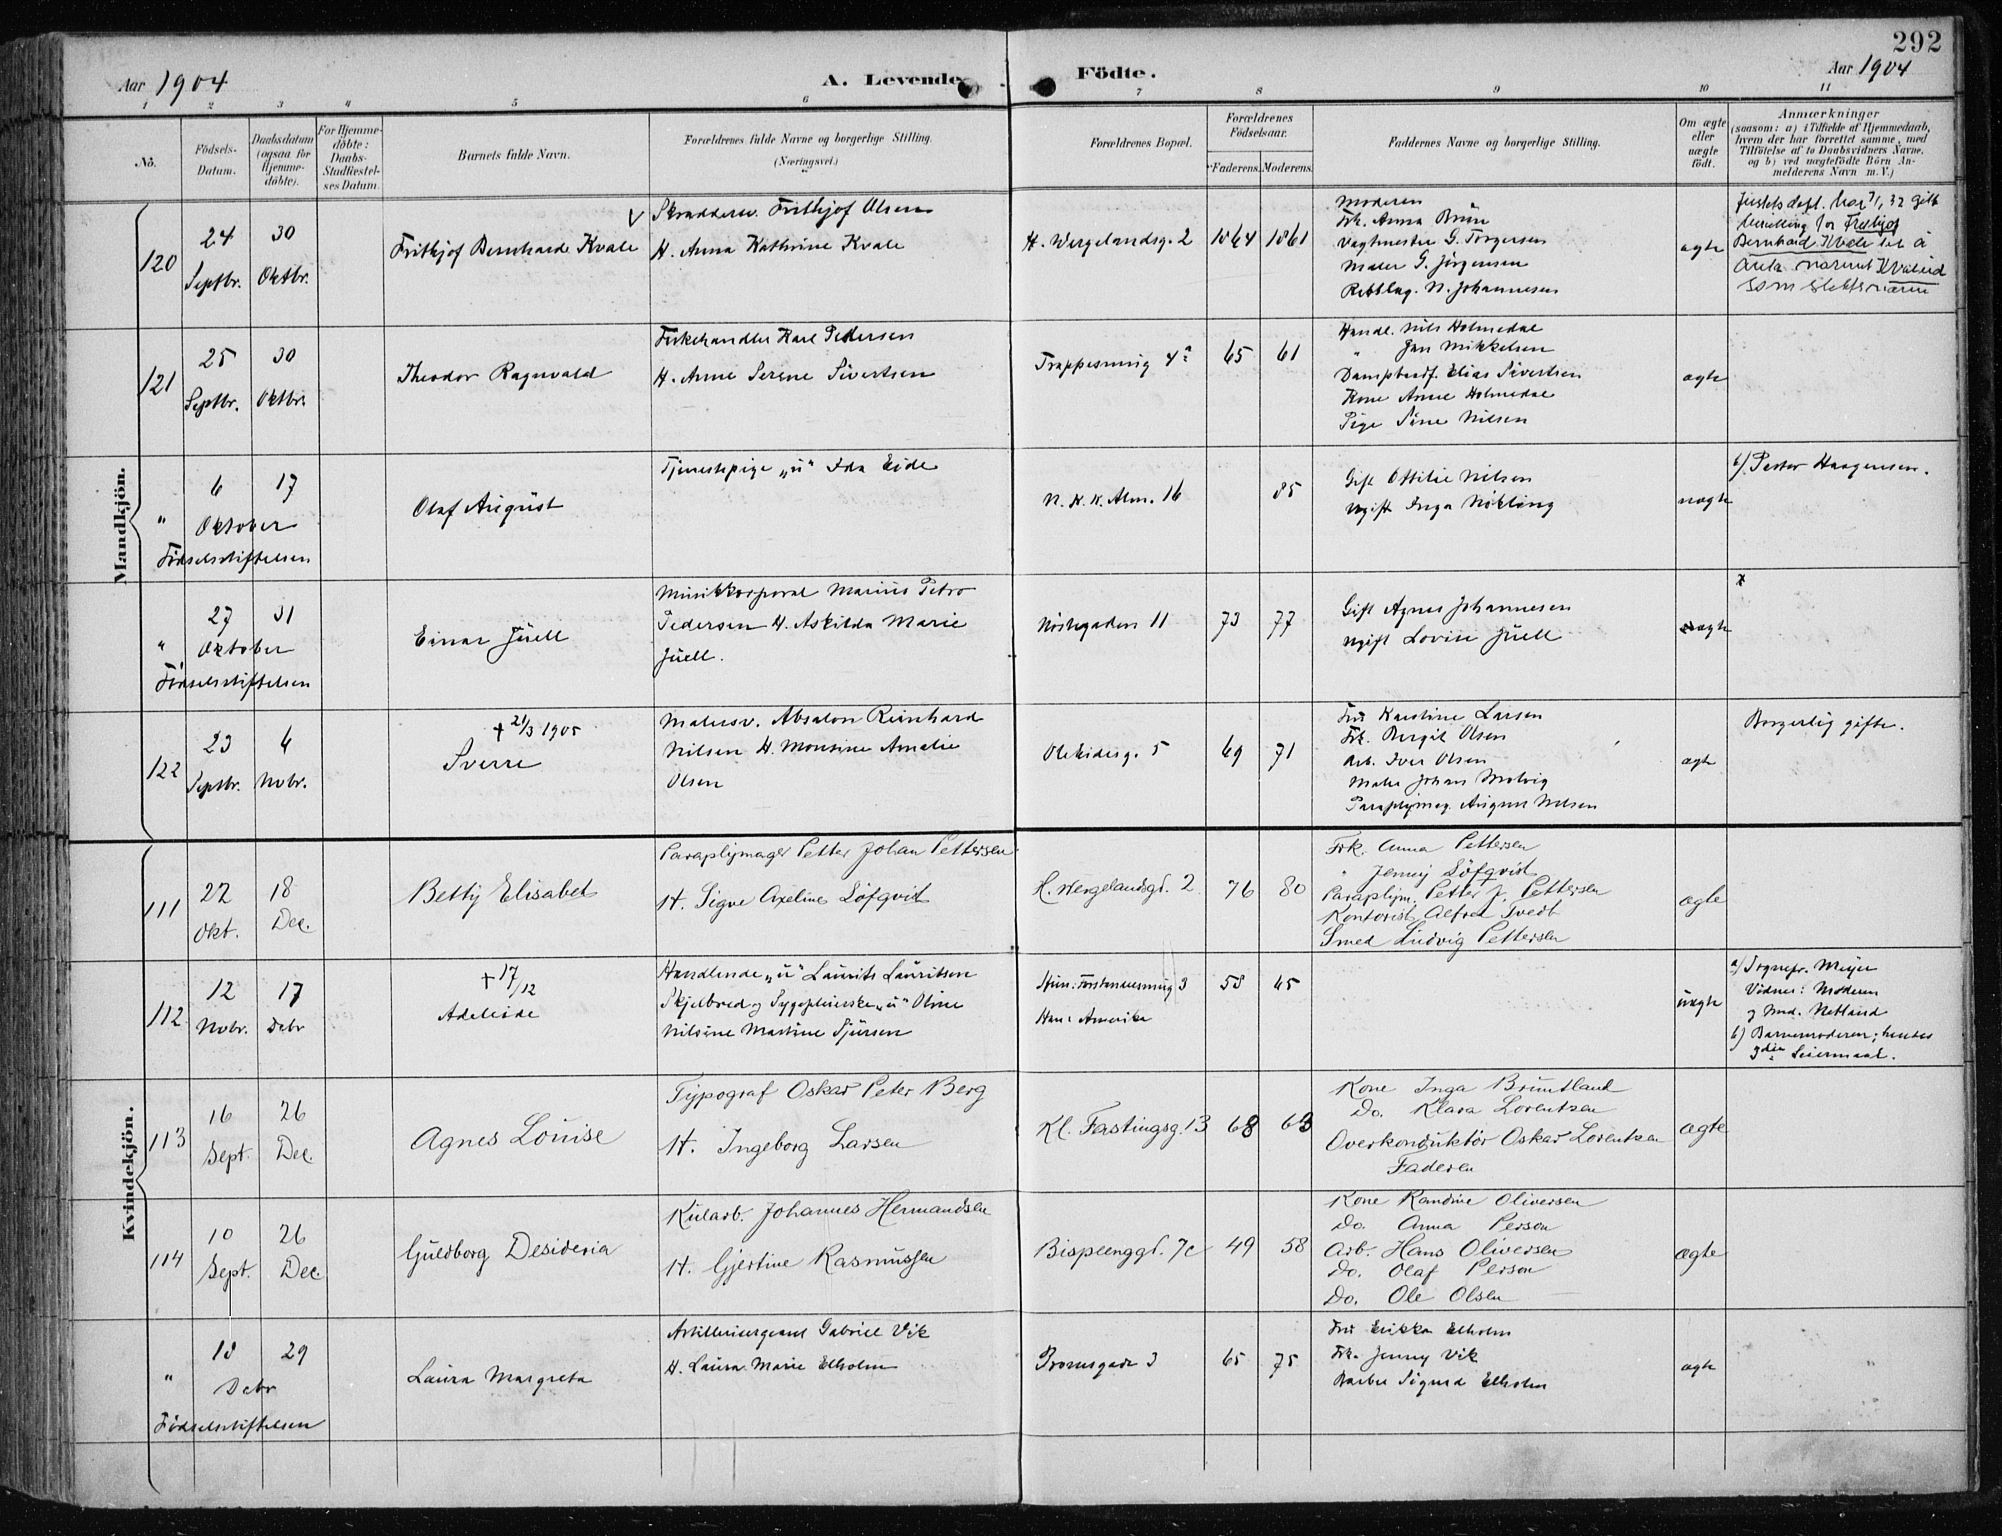 292
Aar 1904
A. Levende Födte.
Aar 1904
1 2 3 4 5 6 7 8 9 10 11
No.
Födsels-Datum.
Daabsdatum (ogsaa for Hjemme-döbte).
For Hjemme-döbte: Daabs-Stadfæstel-ses Datum.
Barnets fulde Navn.
Forældrenes fulde Navne og borgerlige Stilling.
(Næringsvei.)
Forældrenes Bopæl.
Forældrenes Födselsaar.
Faderens. Moderens.
Faddernes Navne og borgerlige Stilling.
Om ægte eller uægte födt.
Anmærkninger
(saasom: a) i Tilfælde af Hjemmedaab,
hvem der har forrettet samme, med
Tilföielse af to Daabsvidners Navne,
og b) ved uægtefödte Börn An-
melderens Navn m. V.)
Mandkjön.
120
24 Septbr.
30 Oktbr.
Frithjof Bernhard Kvale
Skræddersv. Frithjof Olsen
H. Anna Kathrine Kvale
H. Wergelandsg. 2
1864 1861
Moderen
Frk. Anna Brun
Vagtmester G. Torgersen
Maler G. Jörgensen
Rebslag. N. Johannesen
ægte
Justisdept. har 7/1 32 gitt
bevilling for Fridtjof
Bernhard Kvale til å
anta navnet Kvalvid
som slektsnavn
121
25 Septbr.
30 Oktbr.
Theodor Ragnvald
Fiskehandler Karl Pedersen
H. Anne Serene Sivertsen
Trappesmug 4a
65 61
Handl. Nils Holmedal
" Jan Mikkelsen
Dampbaadf. Elias Sivertsen
Kone Anne Holmedal
Pige Sine Nilsen
ægte
"
6 17
Oktober
Födselsstiftelsen
Olaf August
Tjenestepige „u“ Ida Eide
N. K. K. Alm. 16
85
Gift Ottilie Nilsen
Ugift Inga Nökling
uægte
b) Pastor Haagensen.
"
27 31
Oktober
Födselsstiftelsen
Einar Juell
Musikkorporal Marius Petro
Pedersen H. Askilda Marie
Juell.
Nöstegaden 11
73 77
Gift Agnes Johannesen
Ugift Lovise Juell
ægte
x
122
23 Septbr.
6 Novbr.
+ 21/3 1905
Sverre
Malersv. Absalon Reinhard
Nilsen H. Monsine Amalie
Olsen
Ole Eidesg. 5
69 71
Fru Karoline Larsen
Frk. Borgil Olsen
Arb. Iver Olsen
Maler Johan Molvig
Paraplymag. August Nilsen
ægte
Borgerlig gifte.
Kvindekjön.
111
22 Okt.
18 Dec.
Betty Elisabet
Paraplymager Petter Johan Pettersen
H. Signe Axeline Löfqvist
H. Wergelandsgd. 2
76 80
Frk. Anna Pettersen
" Jenny Löfqvist
Paraplym. Petter J. Pettersen
Kontorist Alfred Tvedt
Smed Ludvig Pettersen
ægte
112
12 Novbr.
17 Debr
+ 17/12
Adeleide
Handlende „u“ Laurits Lauritsen
Skjelbred og Sygepleierske „u“ Oline
Nilsine Martine Sjursen
Hun: Forstandersmug 3
Han: Amerika
58 65
uægte
a) Sognepr. Meyer
Vidner: Moderen
og Md. Netland
b) Barnemoderen; hendes
3die Leiermaal.
113
16 Sept.
26 Dec.
Agnes Louise
Typograf Oskar Peter Berg
H. Ingeborg Larsen
Kl. Fastingsg. 13
68 63
Kone Inga Bruntland
Do. Klara Lorentzen
Overkonduktör Oskar Lorentzen
Faderen
ægte
114
10 Sept.
26 Dec.
Guldborg Desideria
Kularb. Johannes Hermandsen
H. Gjertine Rasmussen
Bispeenggd. 7c
49 58
Kone Randine Oliversen
Do. Anna Person
Arb. Hans Oliversen
Do. Olaf Person
Do. Ole Olsen
ægte
"
18 29
Debr
Födselsstiftelsen
Laura Margreta
Artillerisergeant Gabriel Vik
H. Laura Marie Elholm
Promsgade 3
65 75
Fru Erikka Elholm
Frk. Jenny Vik
Barber Sigurd Elholm
ægte